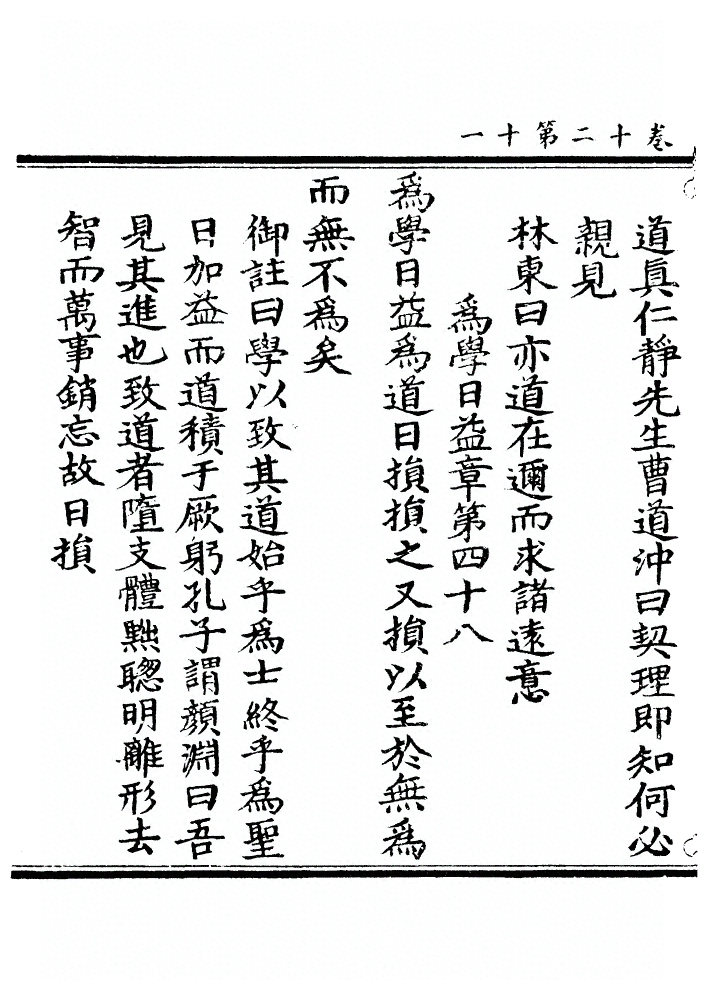 卷十二第十一
道真仁靜先生曹道沖曰契理即知何必
親見
林東曰亦道在邇而求諸遠意
為學日益章第四十八
為學日益為道日損損之又損以至於無為
而無不為矣
御註曰學以致其道始乎為士終乎為聖
日加益而道積于厥躬孔子謂顏淵曰吾
見其進也致道者墮支體黜聰明離形去
智而萬事銷忘故日損